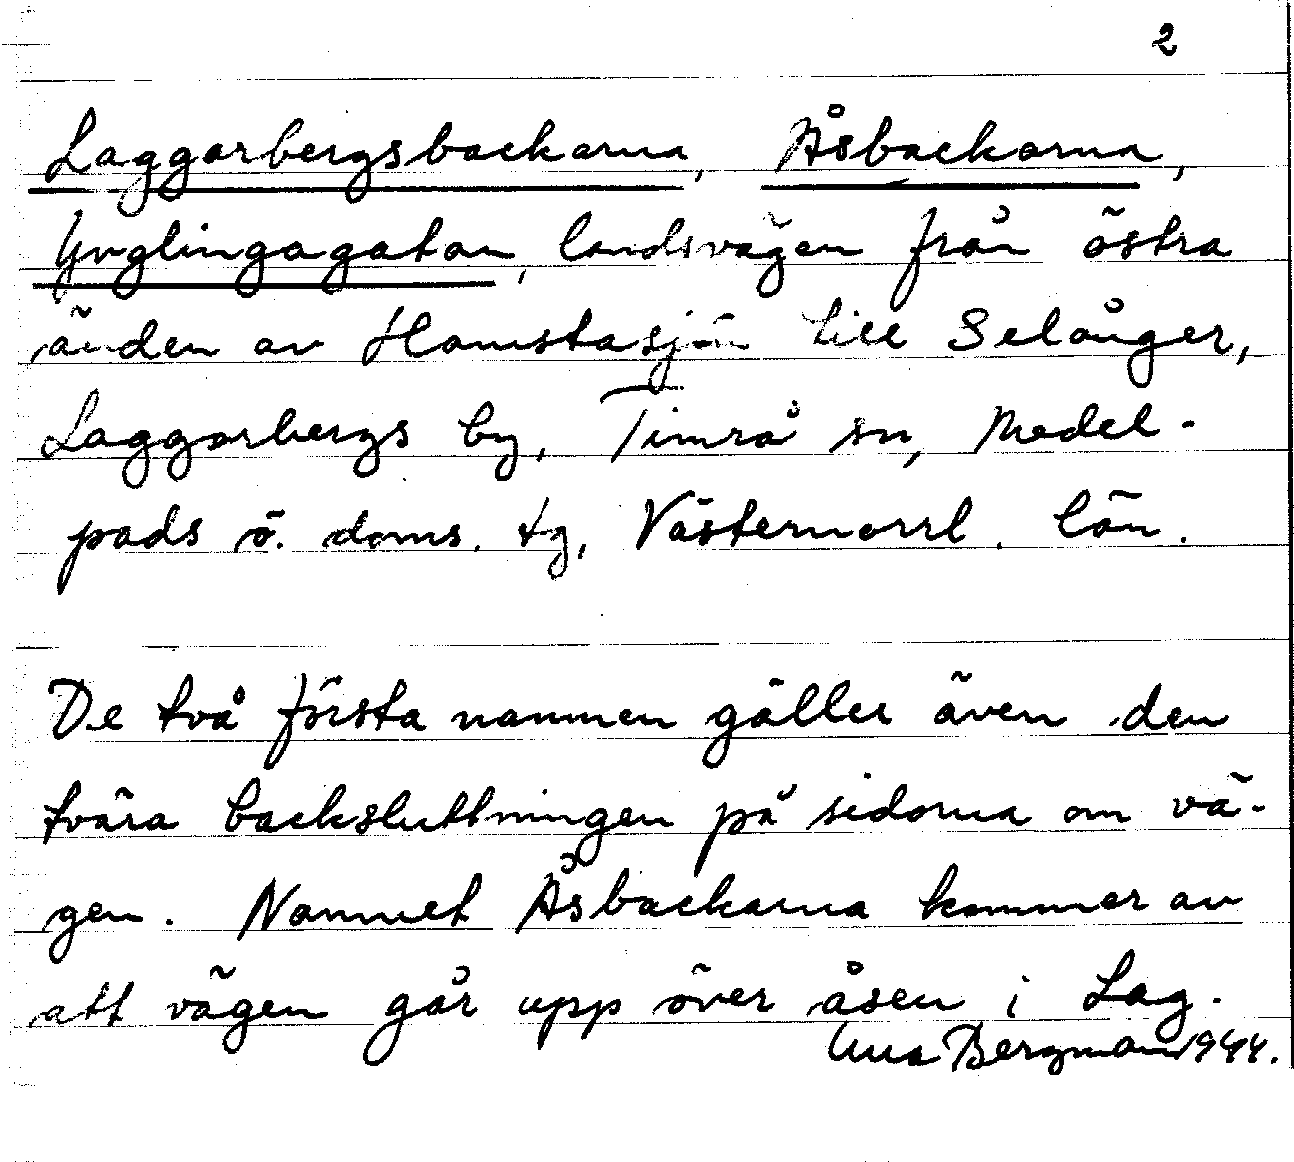 2
Laggarbergsbackarna, Åsbackarna,
Ynglingagatan, landsvägen från östra
änden av Hamstasjön till Selånger,
Laggarbergs by, Timrå sn, Medel-
pads ö. doms. tg, Västernorrl. län.
De två första namnen gäller även den
tvära backsluttningen på sidorna om vä-
gen. Namnet Åsbackarna kommer av
att vägen går upp över åsen i Lag.
Anna Bergman 1944.